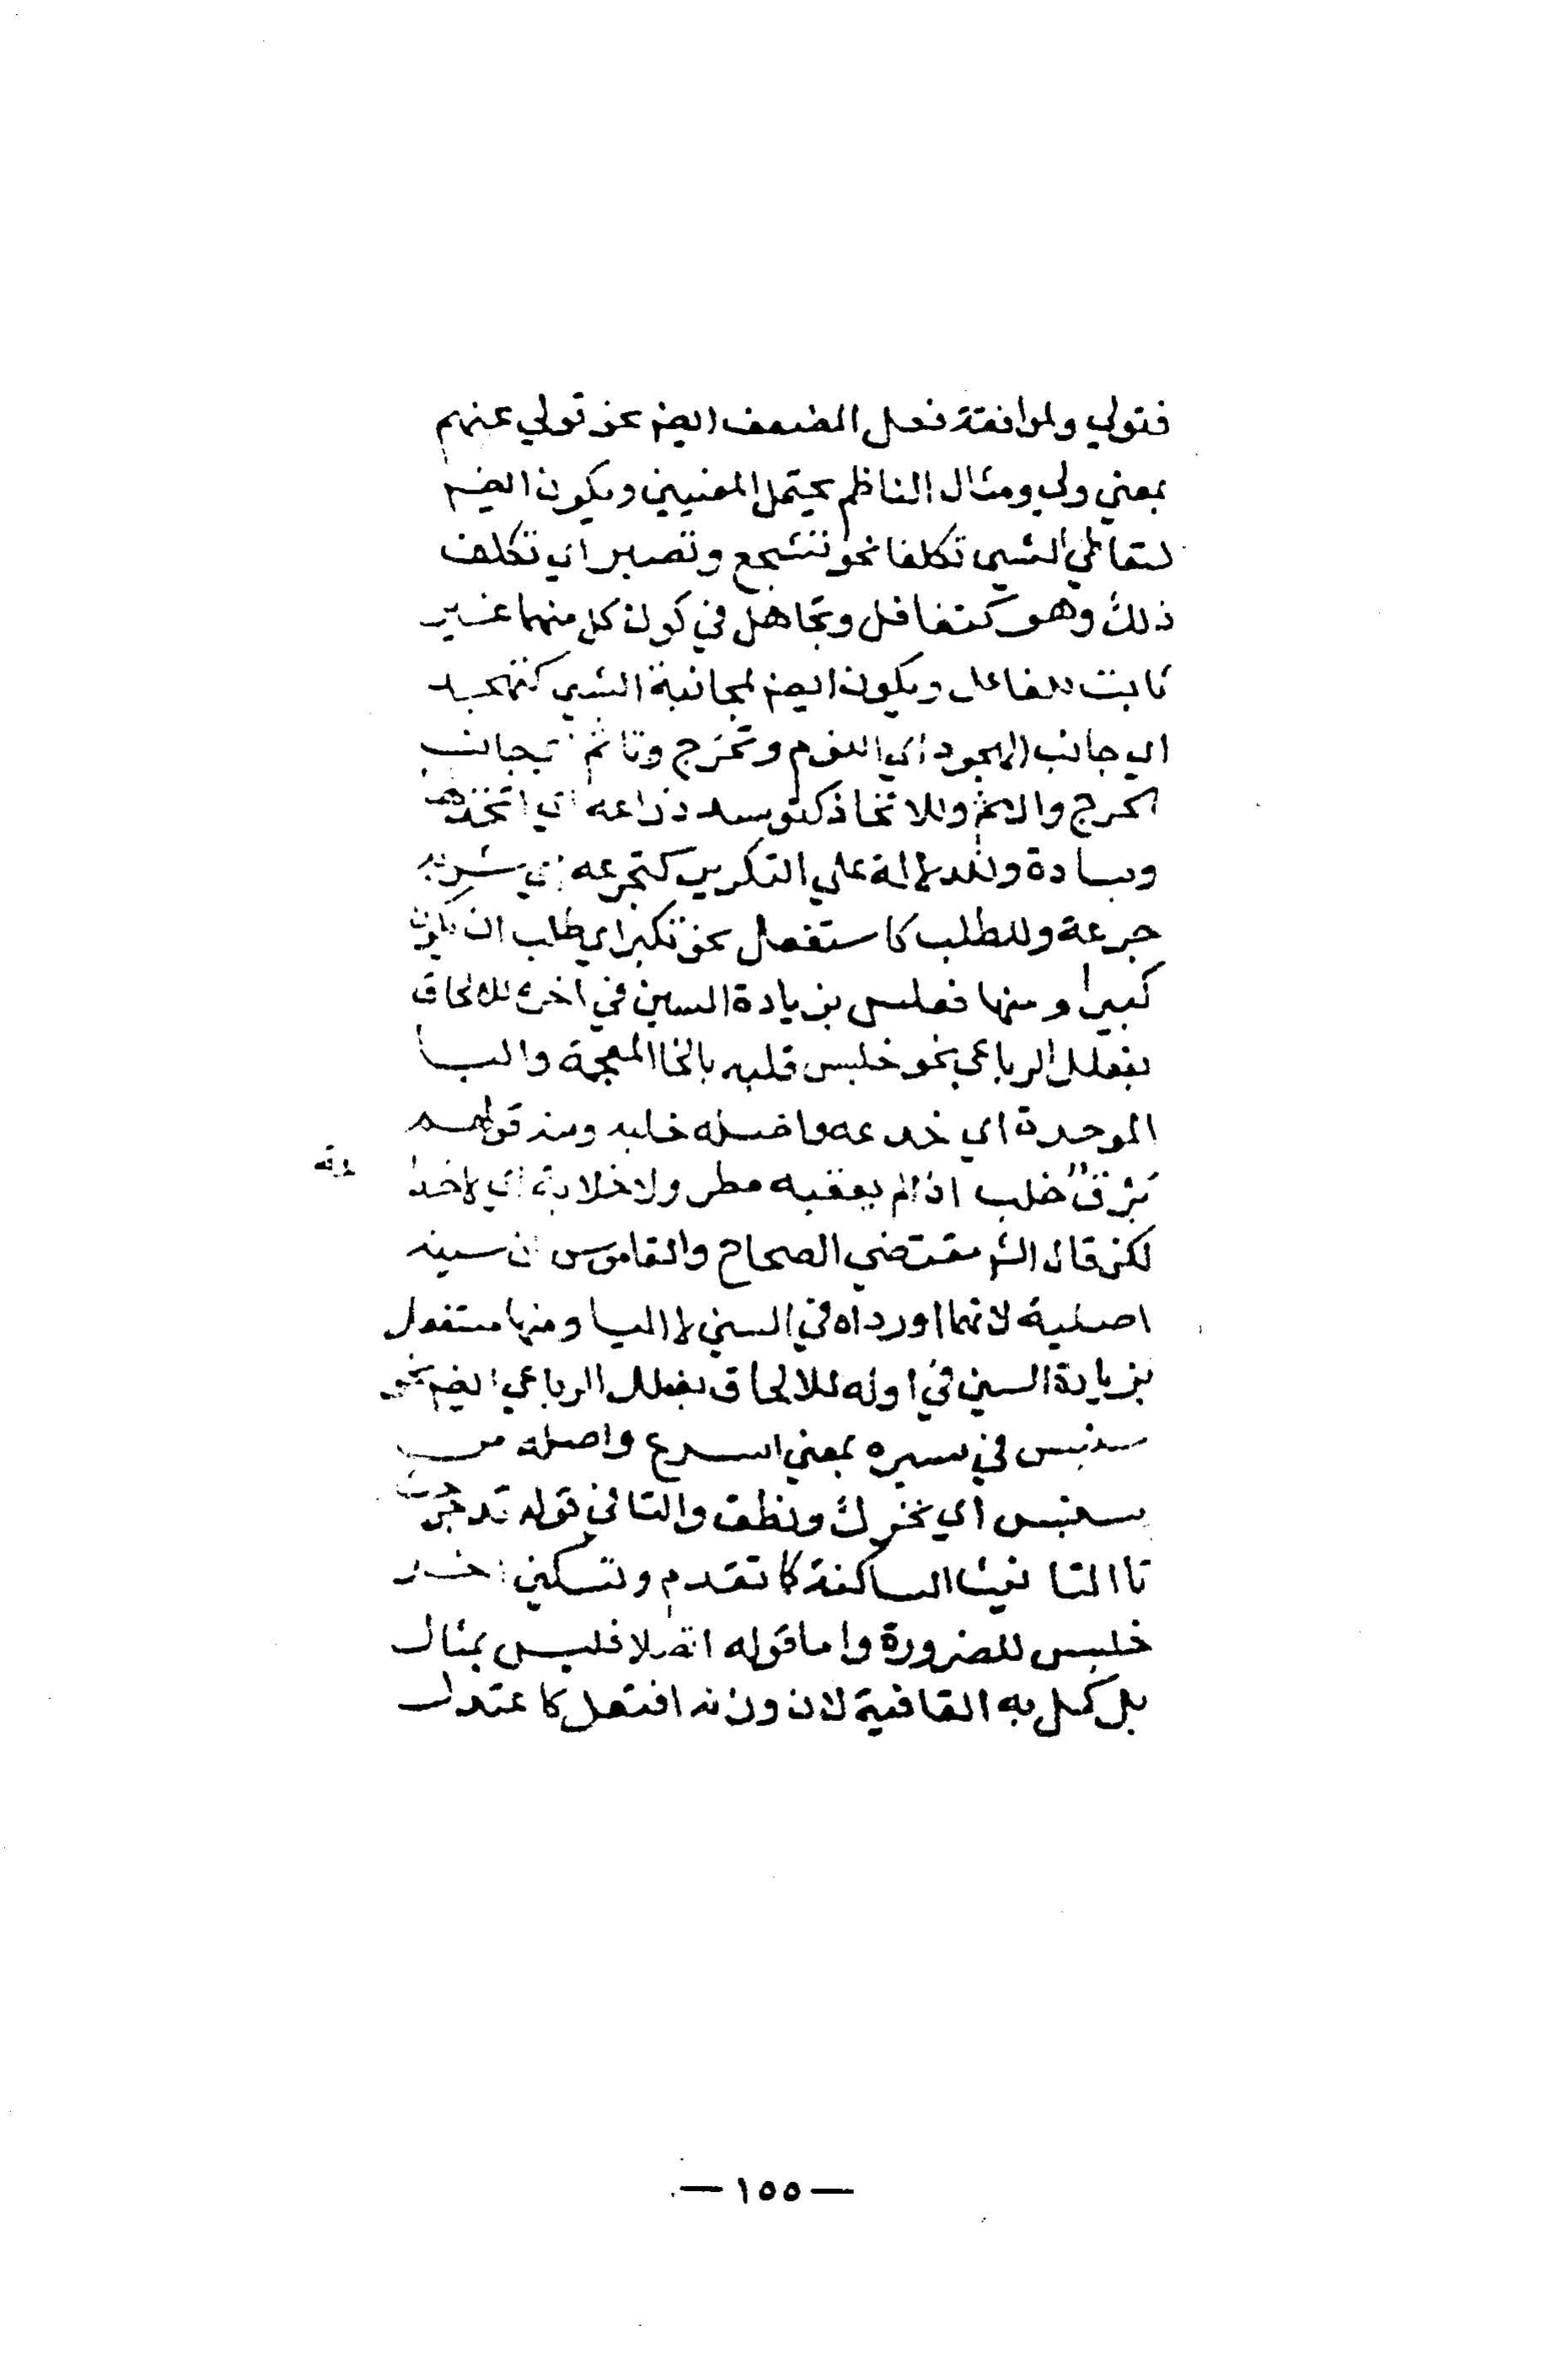 فتولي ولموافقة فعل المضعف ايضا نحو تولي عنهم
بمعني ولي ومثال الناظم يحتمل المعنيين ويكون ايضا
لتعاطي الشي تكلفا نحو تشجع وتصبر اي تكلف
ذلك وهو كتغافل وتجاهل في كون كل منهما غير
ثابت للفاعل ويكون ايضا لمجانبة الشي كتهجد
اي جانب الهجود اي النوم وتحرج وتاثم اي جانب
الحرج والاثم وللاتخاذ كتوسد ذراعه اي اتخذه
وسادة وللدلالة علي التكرير كتجرعه اي شربه
جرعة وللطلب كاستفعل نحو تكبر اي طلب ان يكون
كبيرا ومنها فعلس بزيادة السين في اخره للالحاق
بفعلل الرباعي نحو خلبس قلبه بالخا المعجمة والبا
الموحدة اي خدعه واصله خلبه ومنه قولهم
برق خلب اذا لم يعقبه مطر ولا خلابة اي لا خديعة
لكن قال الشم مقتضي الصحاح والقاموس ان سينه
اصلية لانهما اورداه في السين لا البا ومنها سنفعل
بزيادة السين في اوله للالحاق بفعلل الرباعي ايضم نحو
سنبس في سيره بمعني اسرع واصله من
نبس اي تحرك ونطق والتا في قوله
تا التانيث الساكنة كما تقدم وتسكين اخر
خلبس للضرورة واما قوله اتصلا فليس بمثال
بل كمل به القافية لان وزنه افتعل كاعتدل
— ١٥٥ —